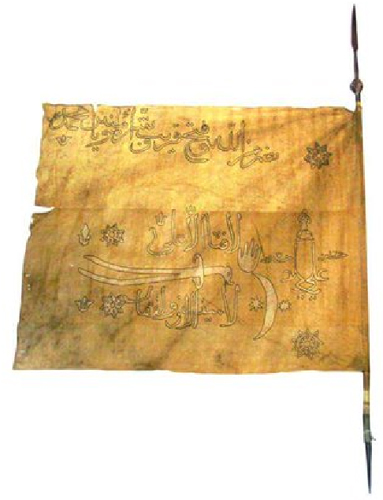 نصر من الله وفتح قريب وبشر المؤمنين محمد
لا فتى الا علي
لا سيف الا ذو الفقار